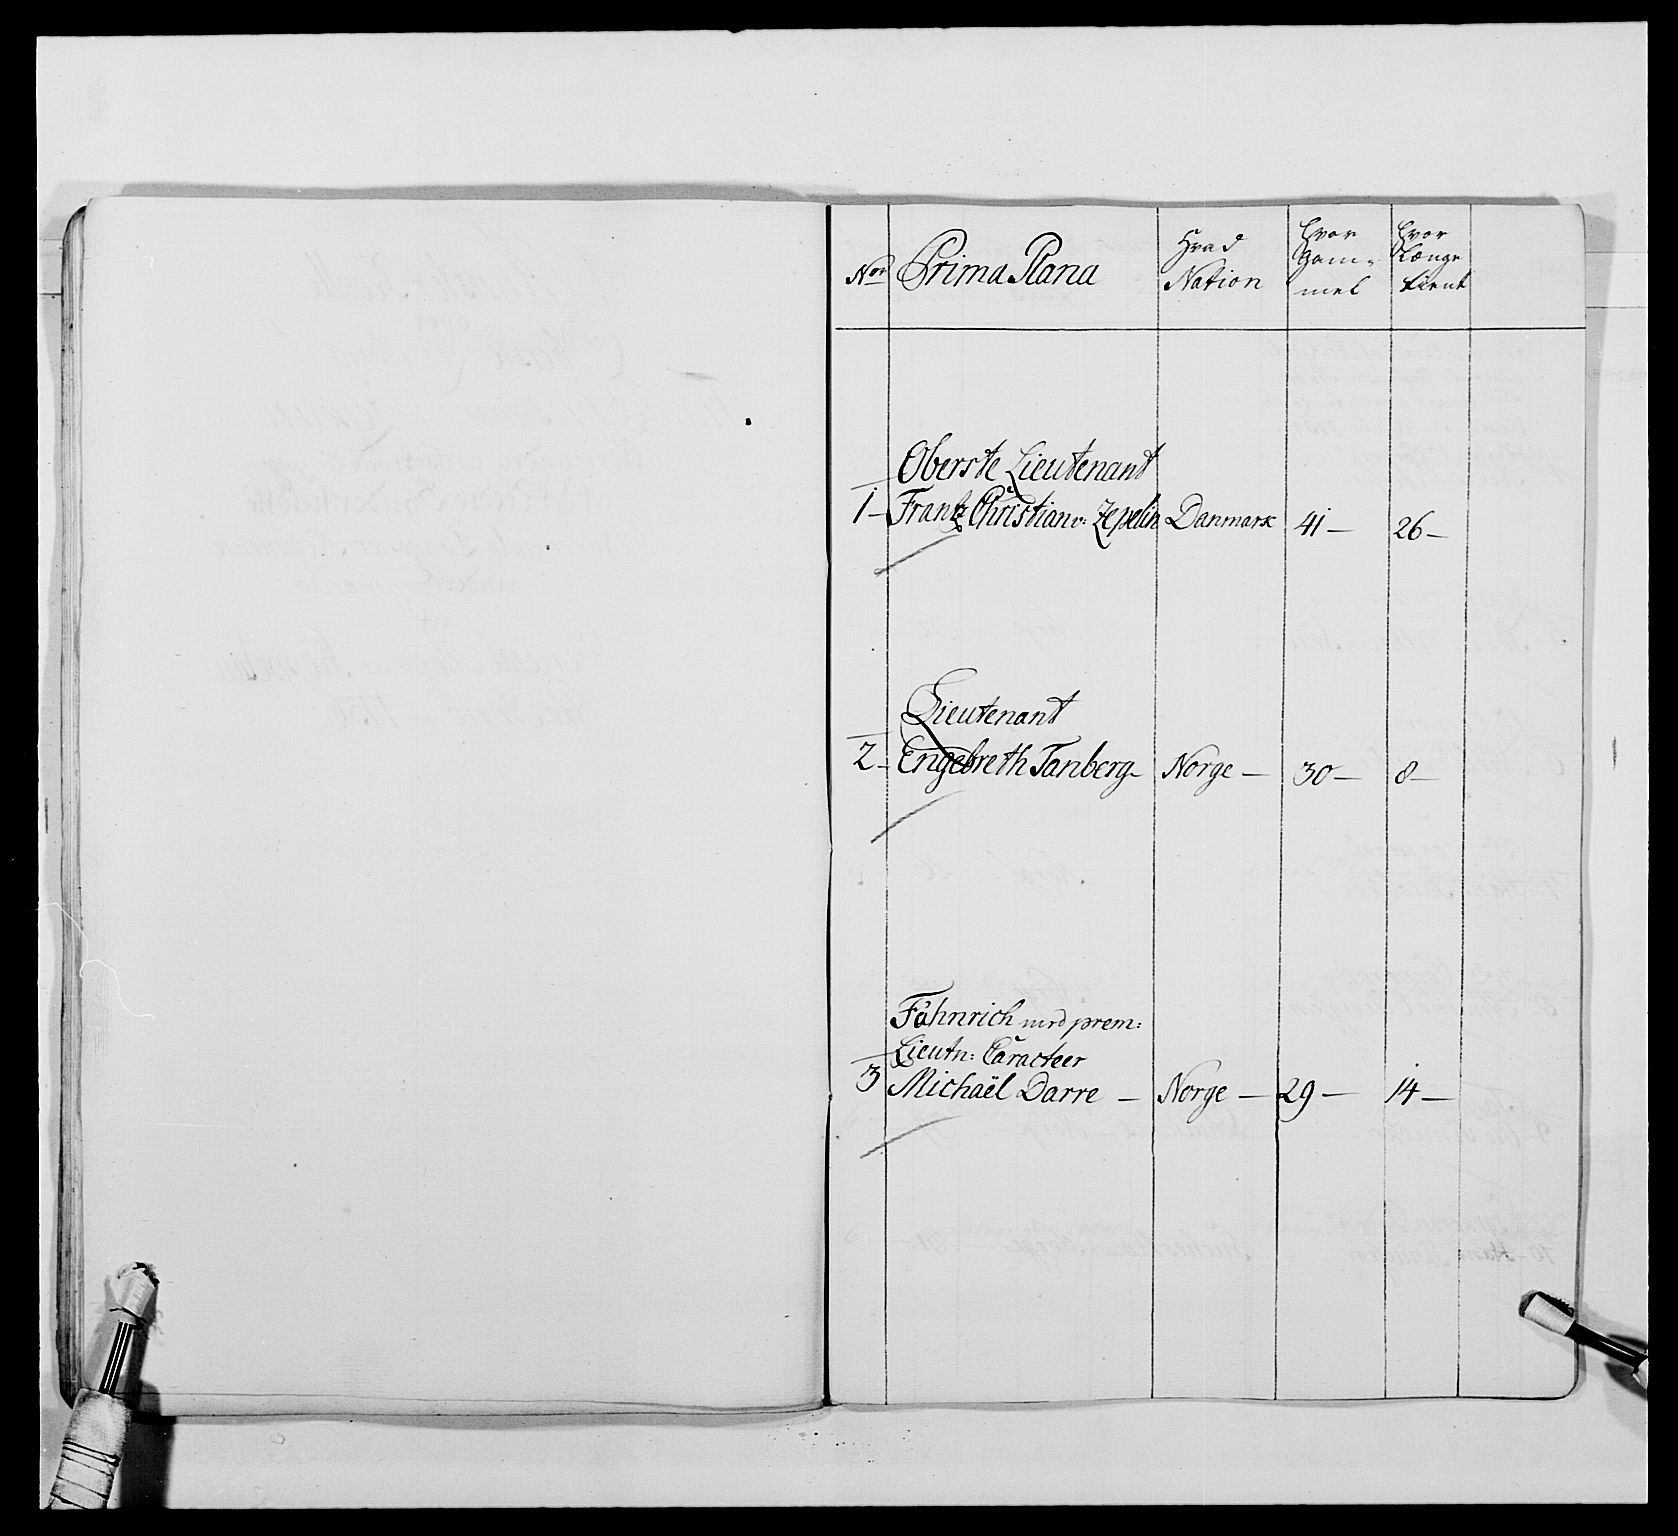 No Prima Plana Hvad Nation Hvor Gam= mel Hvor Længe tient
Oberste Lieutenant
1 - Frantz Christian v: Zepelin Danmark 41 - 26 -
Lieutenant
2 - Engebreth Tanberg - Norge - 30 - 8 -
Fähnrich med prem:
Lieutn: Caracteer
3 Michaël Darre - Norge - 29 - 14 -